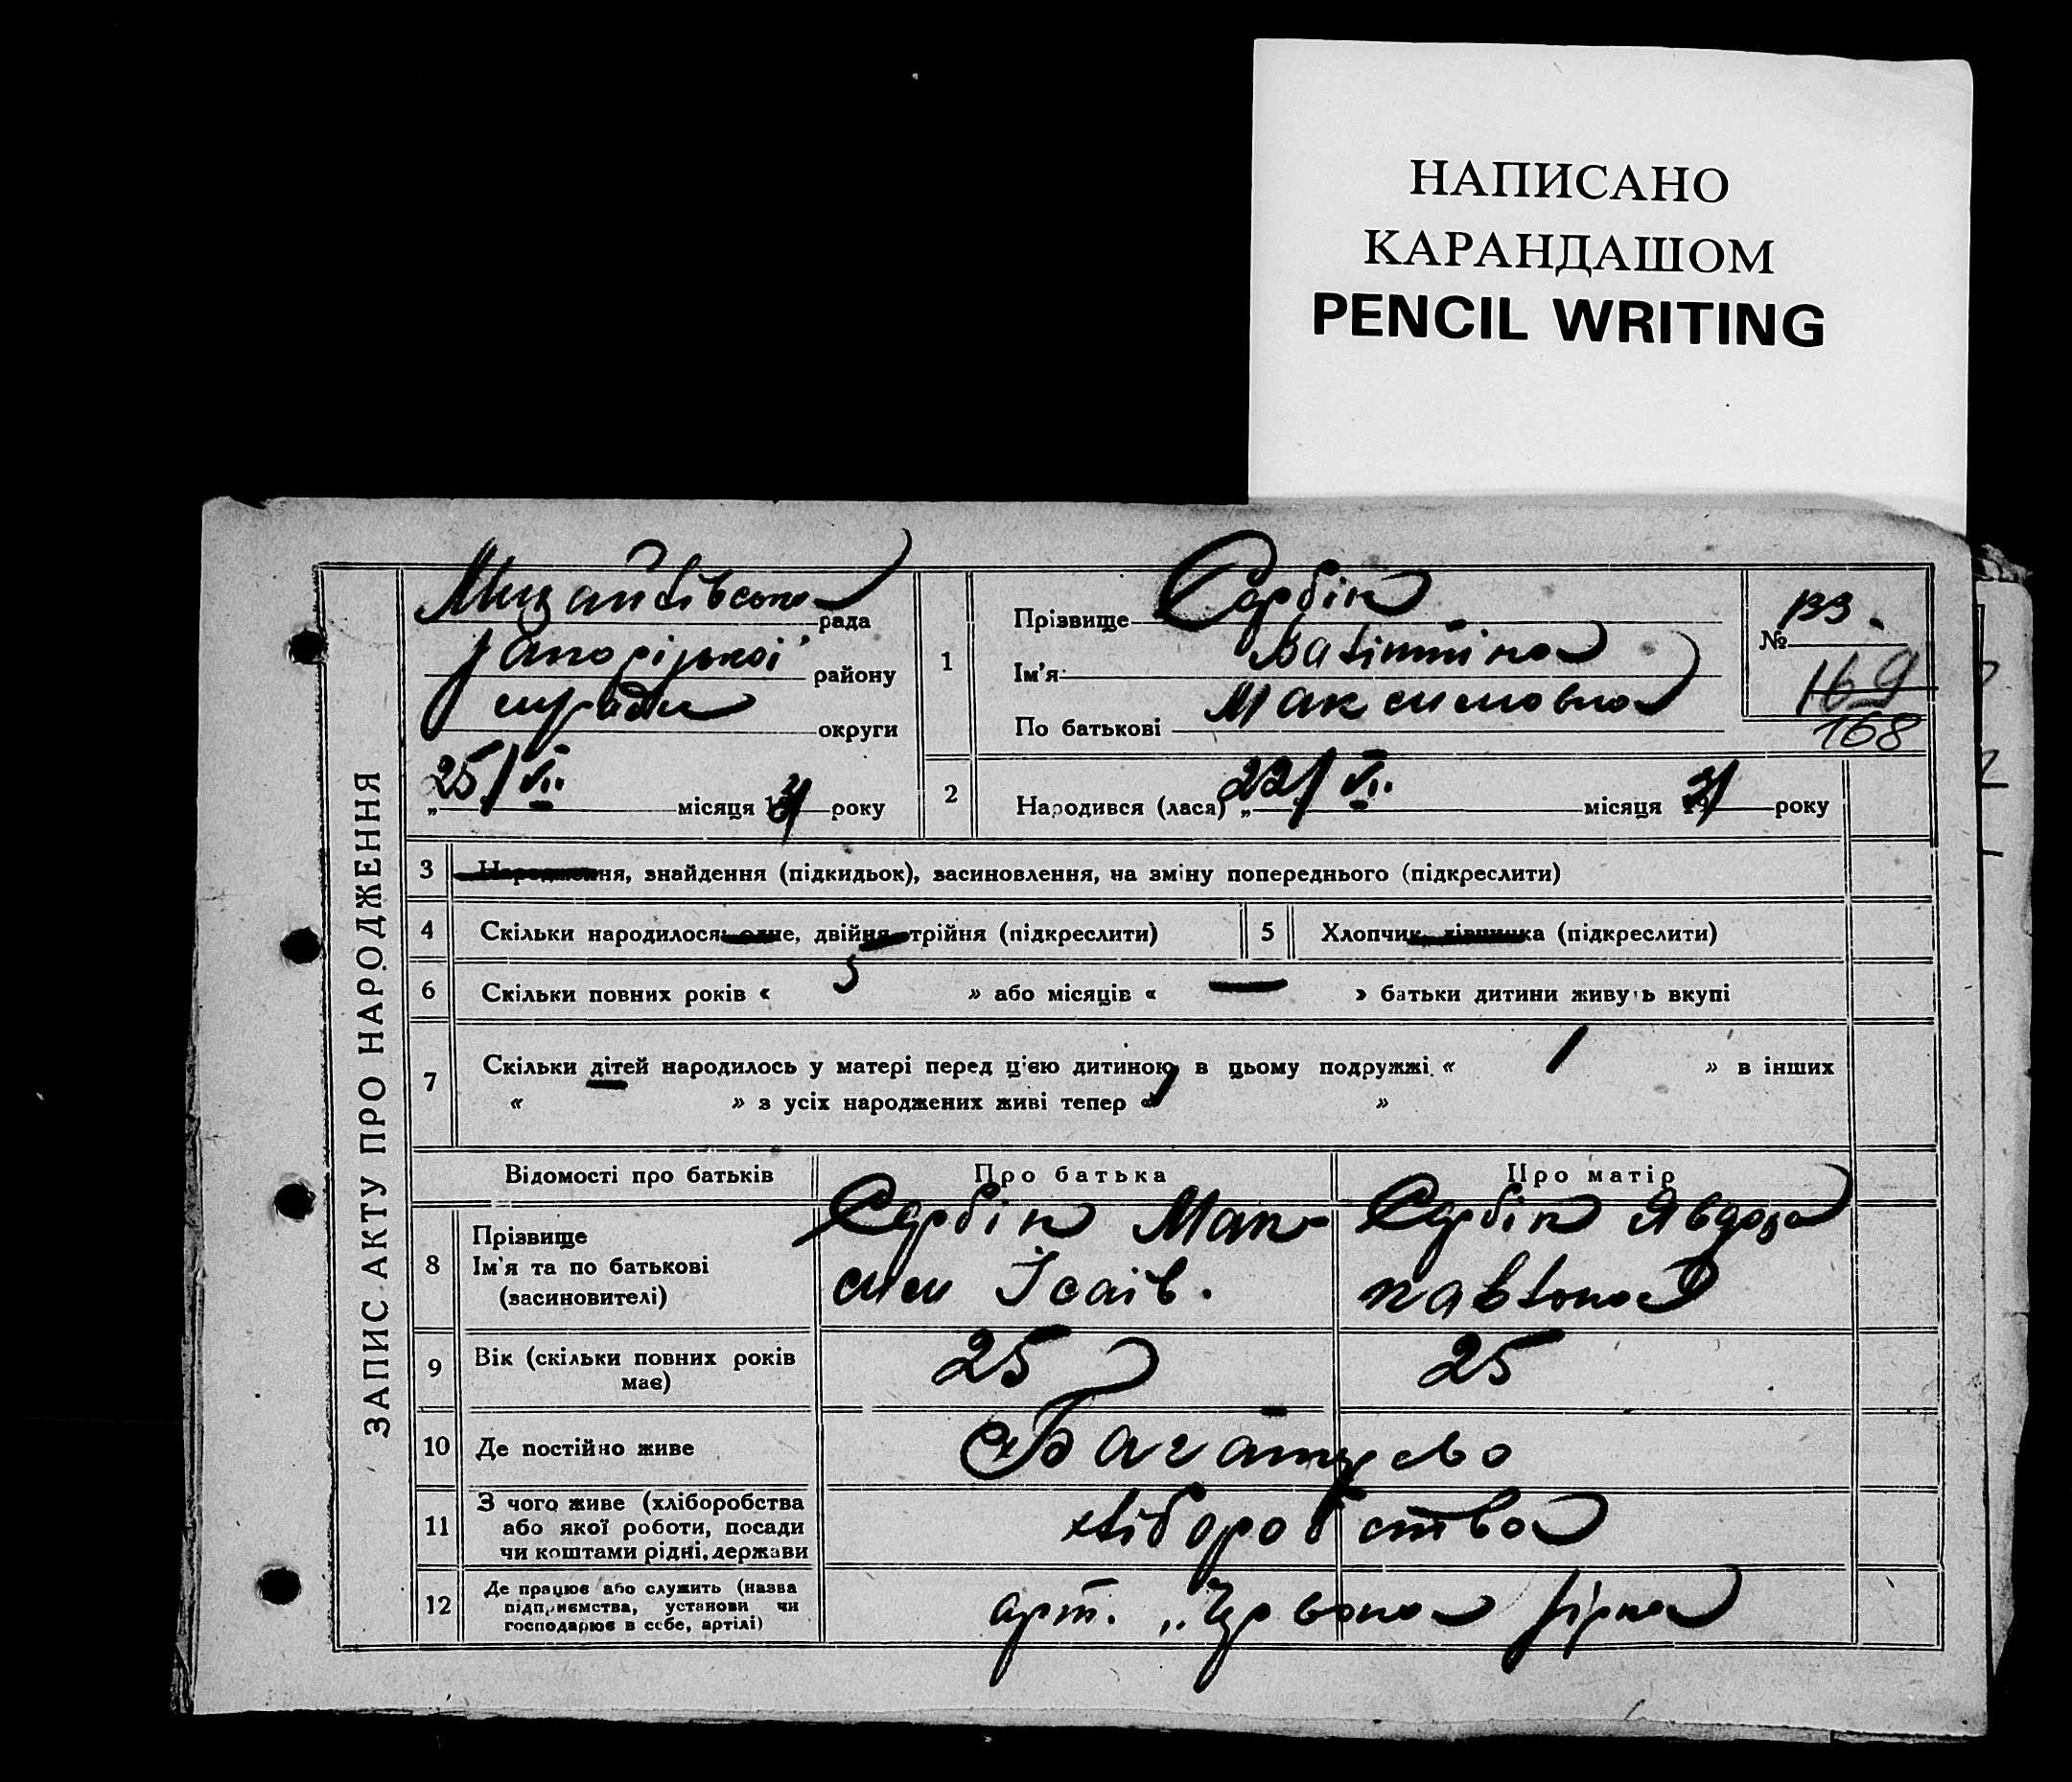 НАПИСАНО
КАРАНДАШОМ
PENCIL WRITING
ЗАПИС АКТУ ПРО НАРОДЖЕННЯ
рада
району
округи
25/VII. місяця року
1 Прізвище Сербін
Ім'я Валінтіна
По батькові Максимовна
№ 133.
169
168
2 Народився (лася) „22/VII. місяця 31 року
3 Народження, знайдення (підкидьок), засиновлення, на зміну попереднього (підкреслити)
4 Скільки народилося: одне, двійня, трійня (підкреслити)
5 Хлопчик, дівчинка (підкреслити)
6 Скільки повних років « 5 » або місяців « — » батьки дитини живуть вкупі
7 Скільки дітей народилось у матері перед цією дитиною в цьому подружжі « 1 » в інших
« — » з усіх народжених живі тепер « 1 »
Відомості про батьків Про батька Про матір
8 Прізвище
Ім'я та по батькові
(засиновителі)
Сербін Мак-
сим Ісаів.
Сербін Явдоха
павловна
9 Вік (скільки повних років
має)
25 25
10 Де постійно живе
11 З чого живе (хліборобства
або якої роботи, посади
чи коштами рідні, держави
хліборобства
12 Де працює або служить (назва
підприємства, установи чи
господарює в себе, артілі)
арт. „Червона зірка